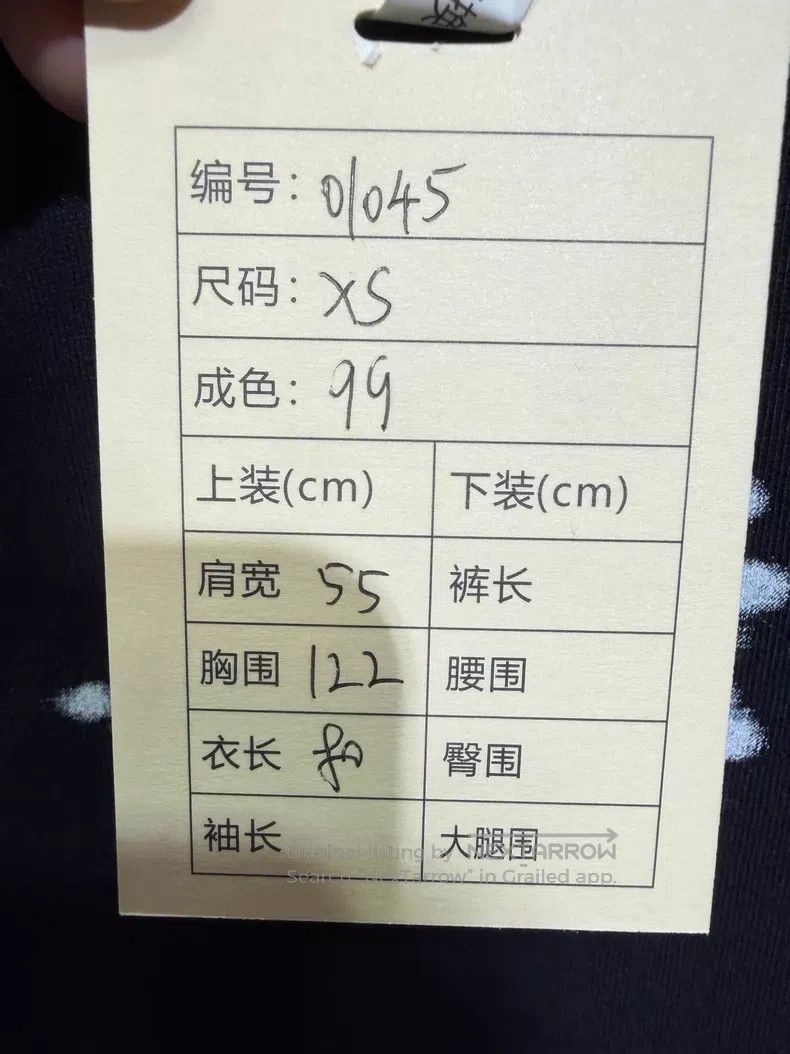 编号：01045
尺码：XS
成色：99
上装(cm) 下装(cm)
肩宽 55 裤长
胸围 122 腰围
衣长 80 臀围
袖长 大腿围
Original listing by NEXTARROW
Search "NexTarrow" in Grailed app.